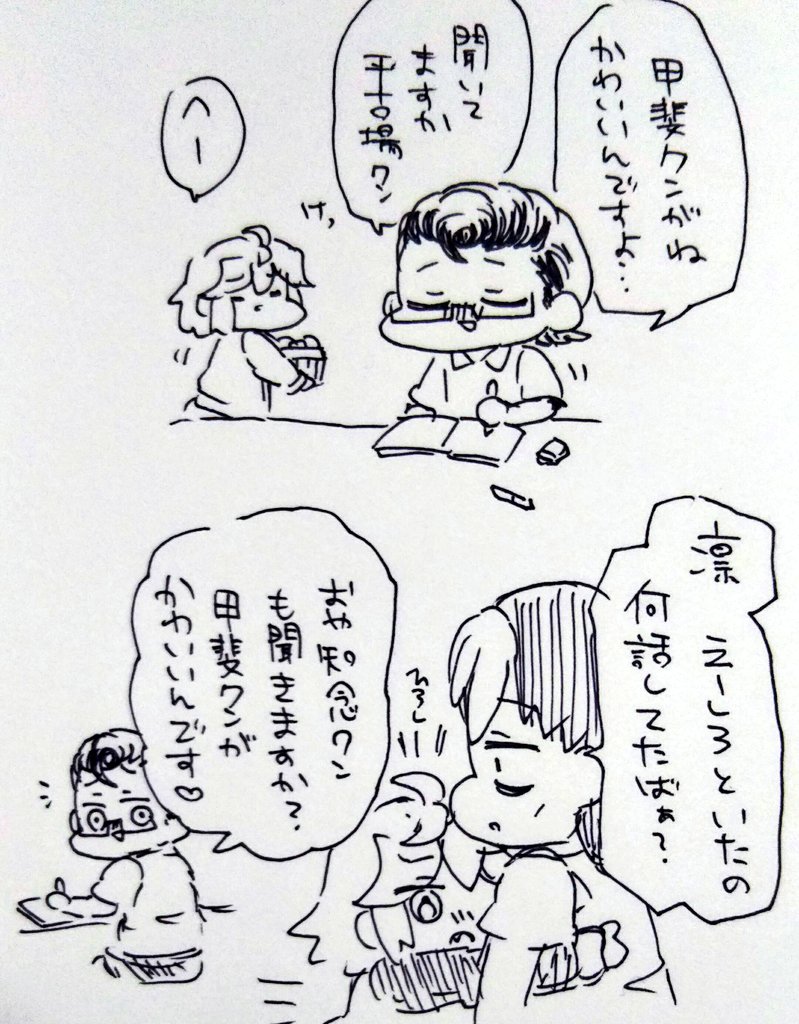 甲斐クンがね
かわいいんですよ…
聞いて
ますか
平古場クン
へー
凛 えーしろといたの
何話してたばぁ?
おや知念クン
も聞きますか?
甲斐クンが
かわいいんです♡